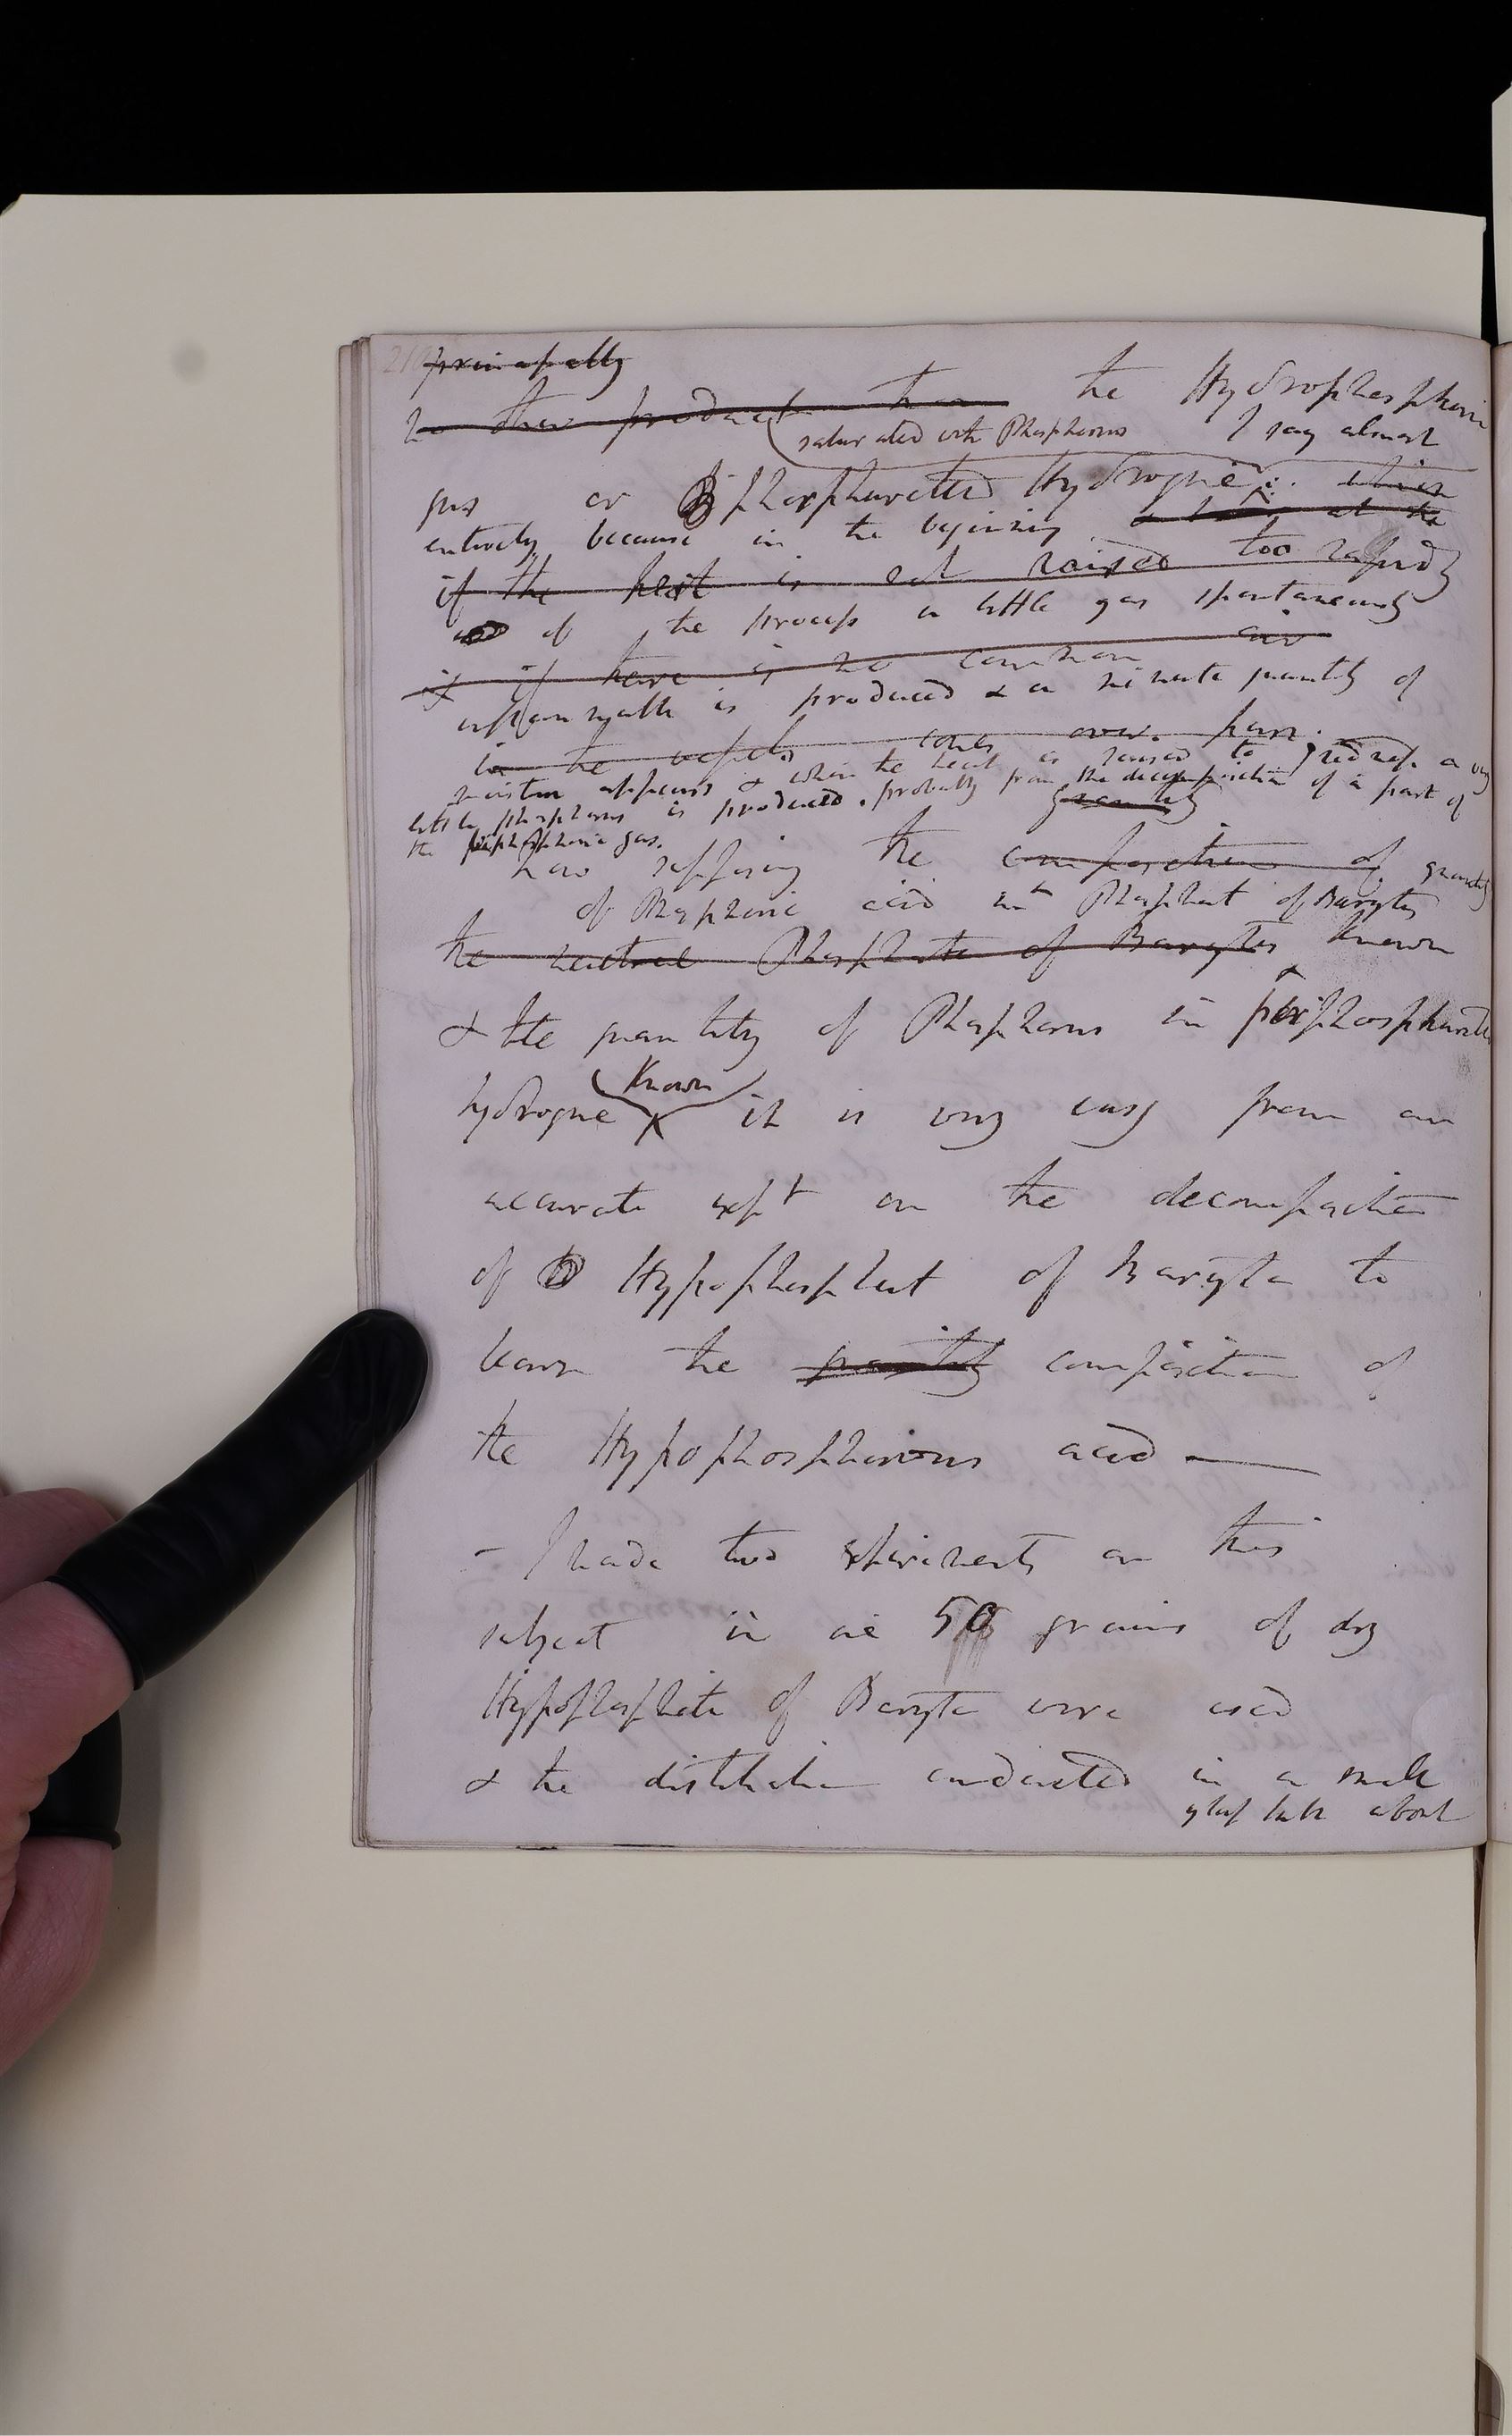 principally
no other product than the Hydrophosphoric
saturated with Phosphorus I say almost
gas or phosphuretted Hydrogene: when
entirely, because in the beginning at the
if the heat is not raised too rapidly
of the process a little gas spontaneously
& if there is no common air
inflammable is produced & a minute quantity of
in the vessels comes over pure.
moisture appears & when the heat is raised to redness a very
little phosphorus is produced, probably from the decomposition of a part of
quantity
the phosphoric gas.
now supposing the composition of quantity
of Phosphoric acid in Phosphat of Barytes
the neutral Phosphate of Barytes known
& the quantity of Phosphorus in perphosphuretted
known
hydrogene it is very easy from an
accurate expt on the decomposition
of Hypophosphat of Baryta to
learn the quantity composition of
the Hypophosphorous acid —
- I made two experiments on this
subject in one 50 grains of dry
Hypophosphite of Baryta were used
& the distillation conducted in a small
glass tube about